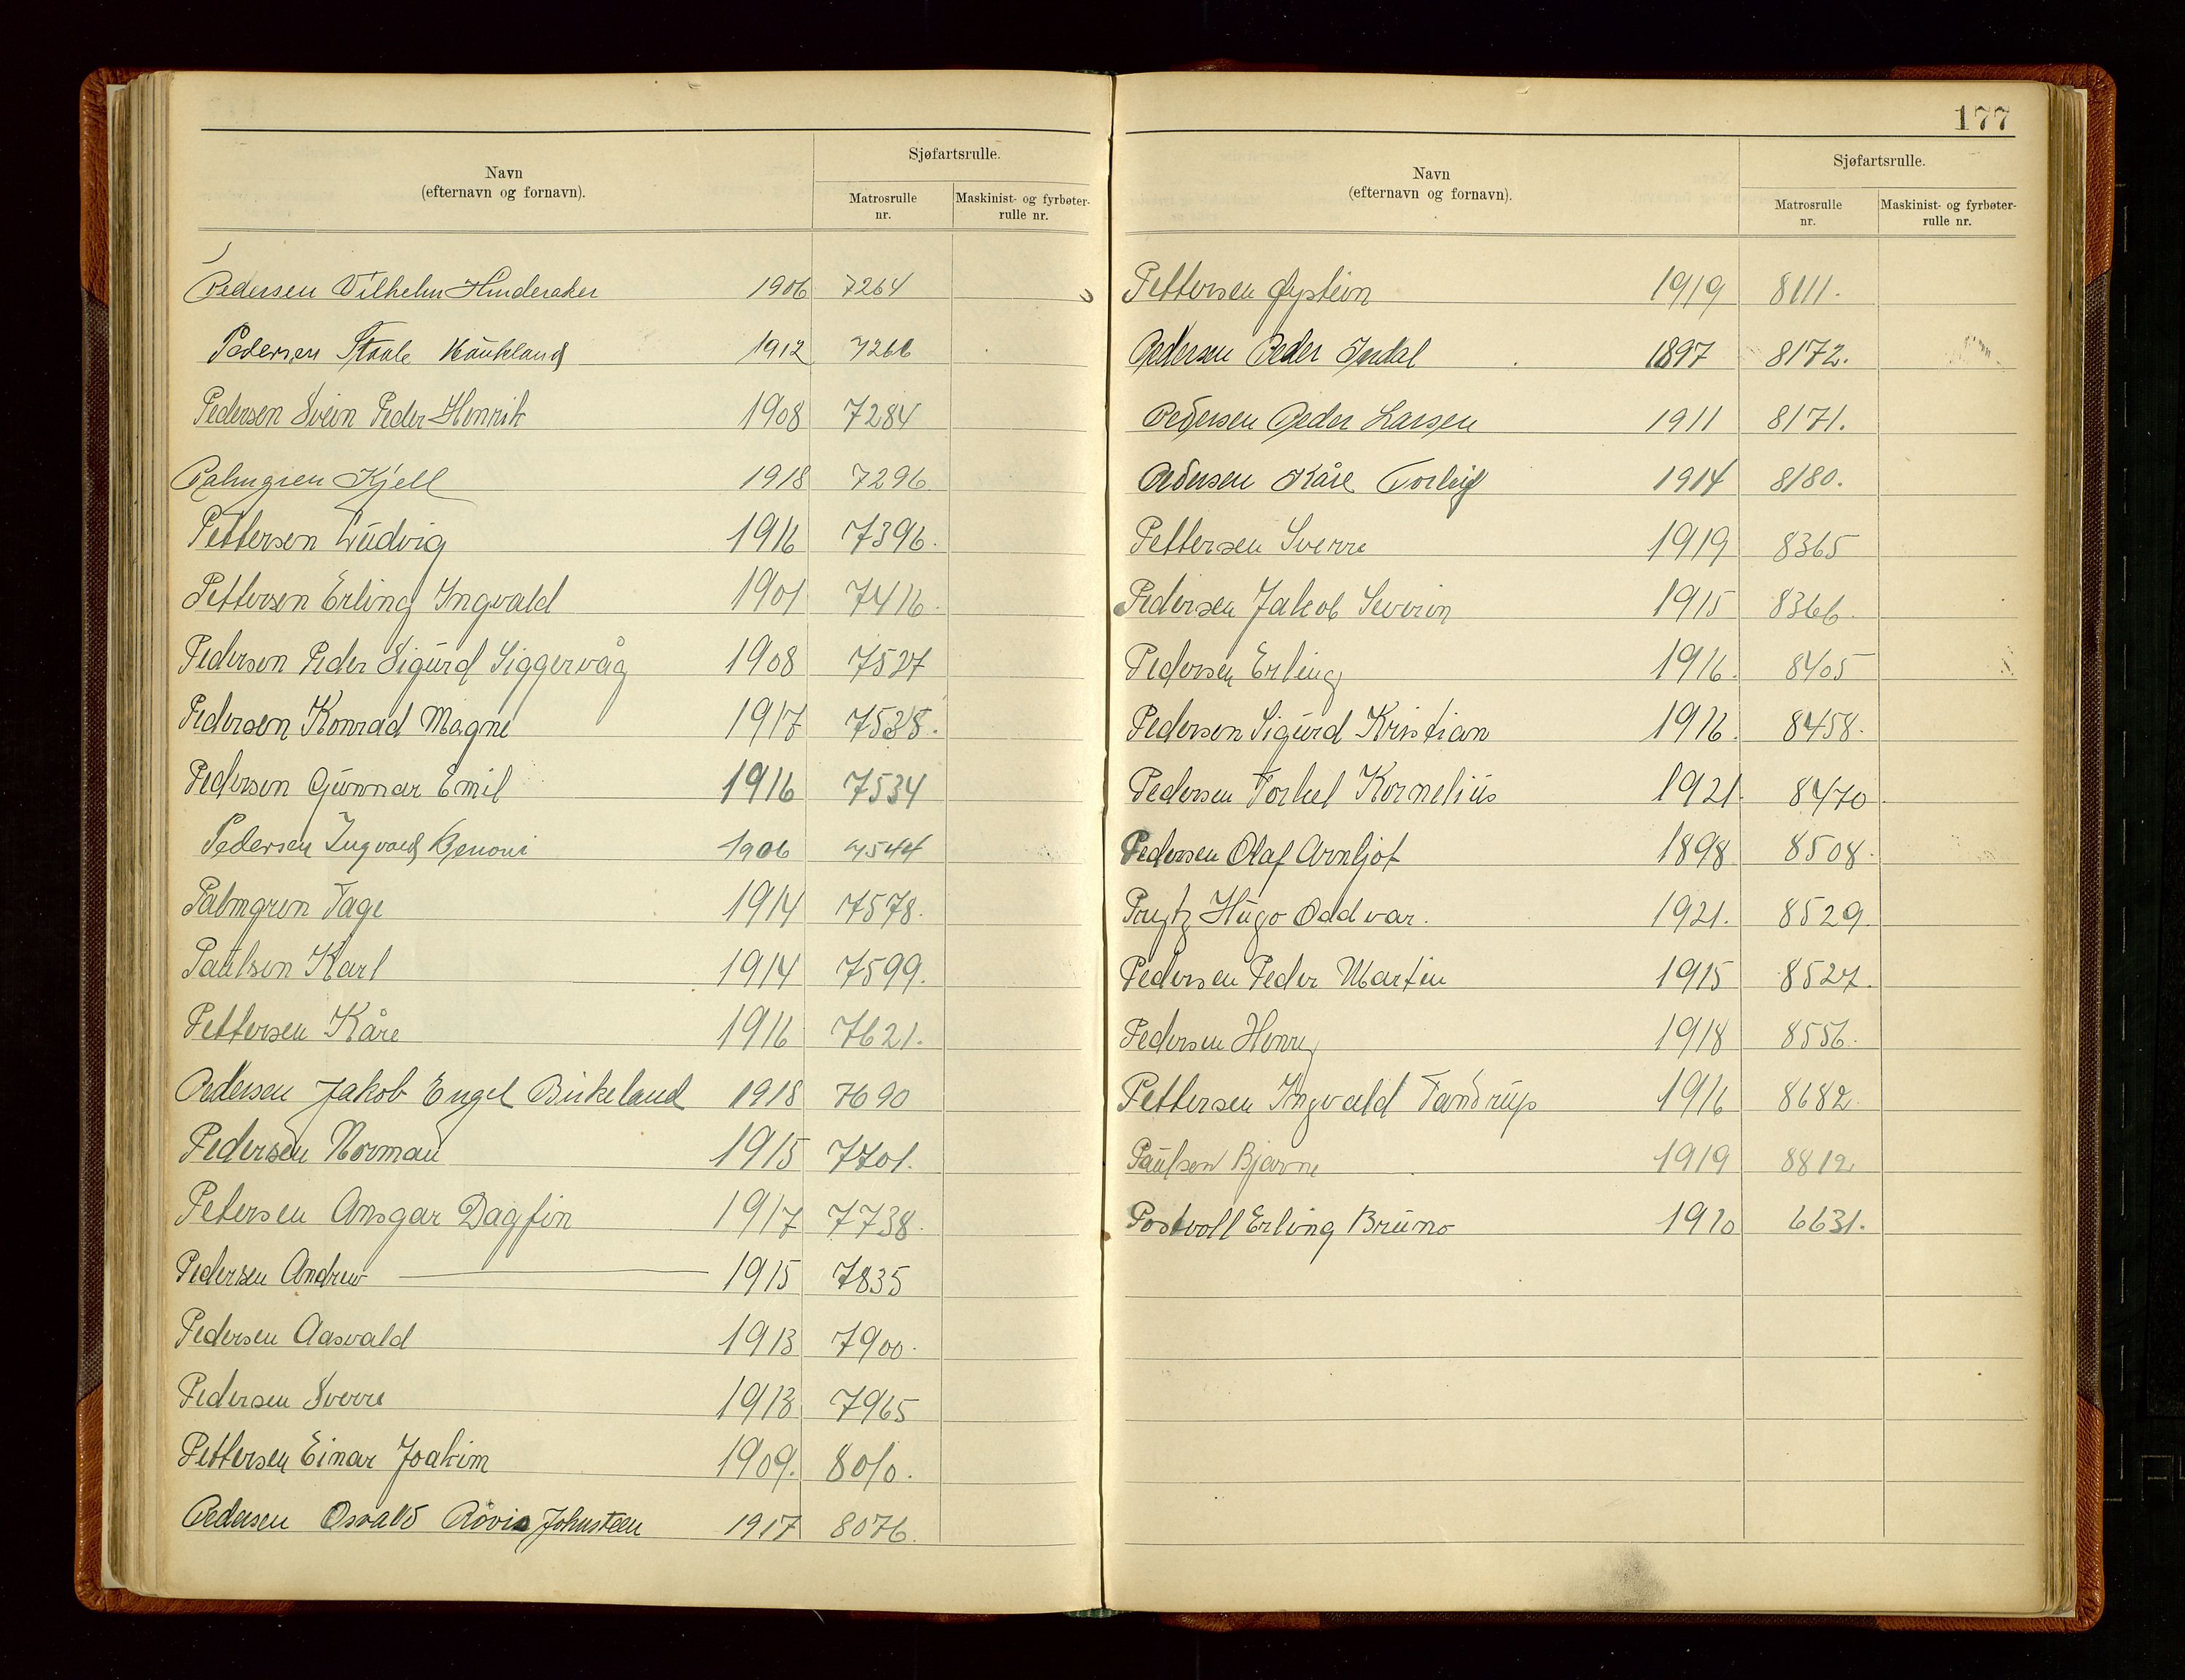 Navn
(efternavn og fornavn).
Sjøfartsrulle.
Matrosrulle
nr.
Maskinist- og fyrbøter-
rulle nr.
Pedersen Vilhelm Hinderaker 1906 7264
Pedersen Staale Haukland 1912 7266
Pedersen Svein Peder Henrik 1908 7284
Palmgren Kjell 1918 7296
Pettersen Ludvig 1916 7396.
Pettersen Erling Ingvald 1901 7416.
Pedersen Peder Sigurd Siggervåg 1908 7527
Pedersen Konrad Magne 1917 7528.
Pedersen Gunnar Emil 1916 7534
Pedersen Ingvald Benoni 1906 7544
Palmgren Tage 1914 7578.
Paulsen Karl 1914 7599.
Pettersen Kåre 1916 7621.
Pedersen Jakob Engel Birkeland 1918 7690
Pedersen Norman 1915 7701.
Petersen Ansgar Dagfin 1917 7738.
Pedersen Andrew 1915 7835
Pedersen Aasvald 1913 7900.
Pedersen Sverre 1913 7965
Pettersen Einar Joakim 1909. 8010.
Pedersen Osvald Johnsteen 1917 8076.
177
Navn
(efternavn og fornavn).
Sjøfartsrulle.
Matrosrulle
nr.
Maskinist- og fyrbøter-
rulle nr.
Pettersen Øystein 1919 8111.
Pedersen Peder Indal 1897 8172.
Pedersen Peder Larsen 1911 8171.
Pedersen Kåre Torleif 1914 8180.
Pettersen Sverre 1919 8365
Pedersen Jakob Severin 1915 8366.
Pedersen Erling 1916. 8405
Pedersen Sigurd Kristian 1916. 8458.
Pedersen Torkel Kornelius 1921. 8470.
Pedersen Olaf Arnljot 1898 8508.
Hugo Oddvar. 1921. 8529.
Pedersen Peder Martin 1915 8527.
Pedersen Henry 1918 8556.
Pettersen Ingvald Tandrup 1916 8682.
Paulsen Bjarne 1919 8812.
Postvoll Erling Bruno 1910 6631.